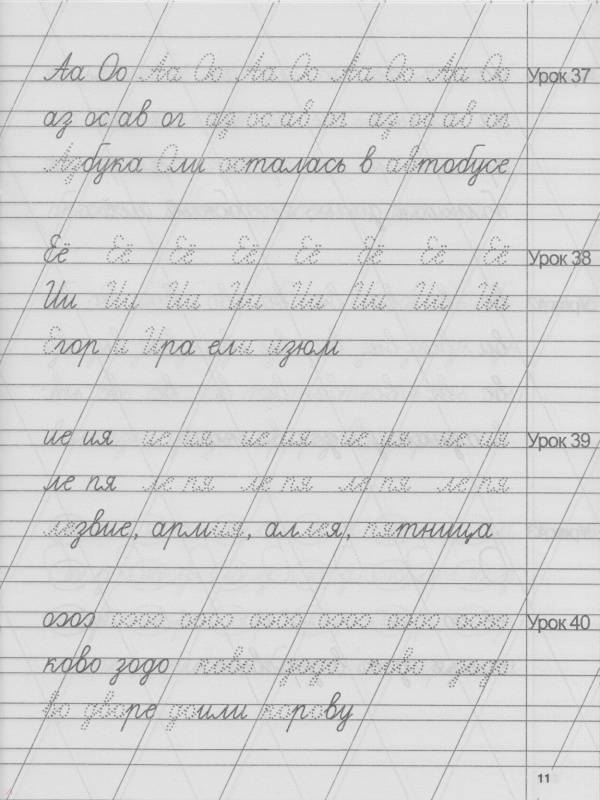 Аа Оо Аа Оо Аа Оо Аа Оо Аа Оо Урок 37
аз ос ав ог аз ос ав ог аз ос ав ог
Азбука Оли осталась в автобусе
Её Её Её Её Её Её Её Её Урок 38
Ии Ии Ии Ии Ии Ии Ии Ии
Егор и Ира ели изюм
ие ия ие ия ие ия ие ия ие ия Урок 39
ле пя ле пя ле пя ле пя ле пя
лезвие, армия, аллея, пятница
Урок 40
ково зодо ково зодо ково зодо
во дворе доили корову
11